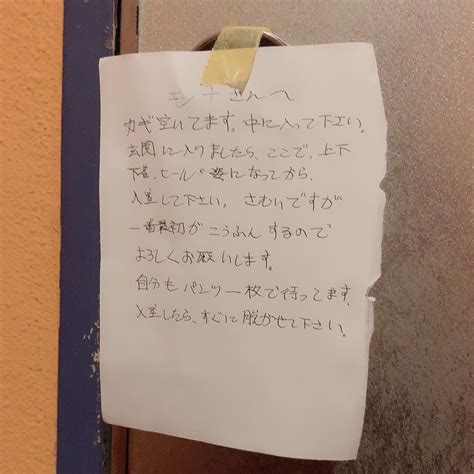 さんへ
カギ空いてます。中に入って下さい。
玄関に入りましたら、ここで、上下
下着、ヒール姿になってから、
入室して下さい。さむいですが
一番最初がこうふんするので
よろしくお願いします。
自分もパンツ一枚で待ってます。
入室したら、すぐに脱がせて下さい。